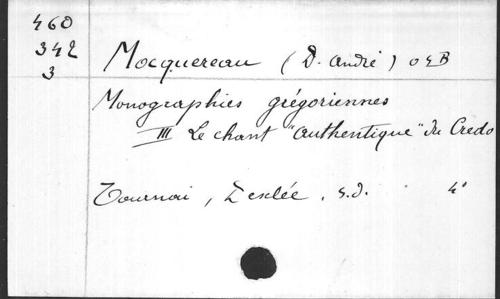 460
342
3
Mocquereau (D. André) OSB
Monographies grégoriennes
III Le chant "authentique" du Credo
Tournai, Desclée, s.d. 4°